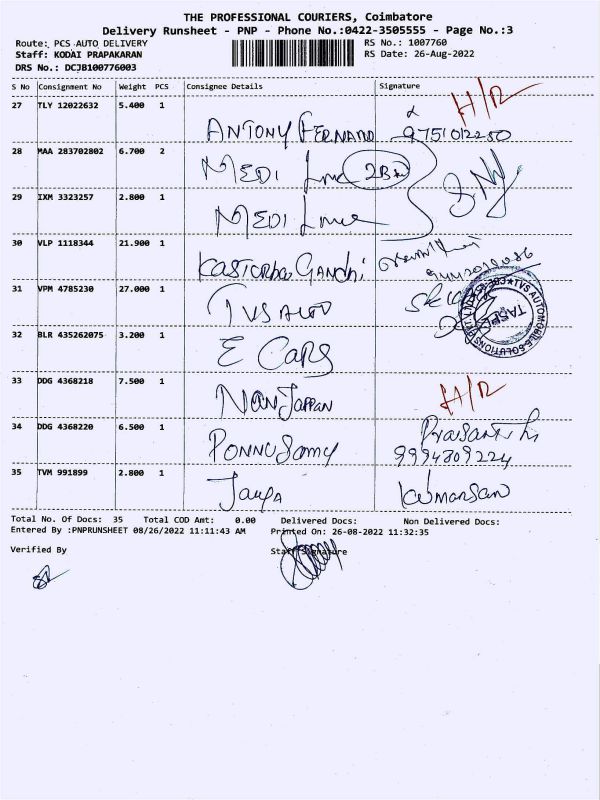 THE PROFESSIONAL COURIERS, Coimbatore
Delivery Runsheet - PNP - Phone No.:0422-3505555 - Page No.:3
Route: PCS AUTO DELIVERY
RS No.: 1007760
Staff: KODAI PRAPAKARAN
RS Date: 26-Aug-2022
DRS No.: DCJB100776003
S No Consignment No Weight PCS Consignee Details Signature
27 TLY 12022632 5.400 1 H/R
ANTONY FERNAND 9751012250
28 MAA 283702802 6.700 2
MEDI Line 2Box
29 IXM 3323257 2.800 1
MEDI Line
30 VLP 1118344 21.900 1
Kasturba Gandhi
31 VPM 4785230 27.000 1
TVS Auto
TVS AUTOMOBILE SOLUTIONS
32 BLR 435262075 3.200 1
E Cars
33 DDG 4368218 7.500 1 H/R
NanJappan
34 DDG 4368220 6.500 1 Prasanth
PONNUSamy 9994809224
35 TVM 991899 2.800 1
Jaya
Total No. Of Docs: 35 Total COD Amt: 0.00 Delivered Docs: Non Delivered Docs:
Entered By :PNPRUNSHEET 08/26/2022 11:11:43 AM Printed On: 26-08-2022 11:32:35
Verified By
Staff Signature